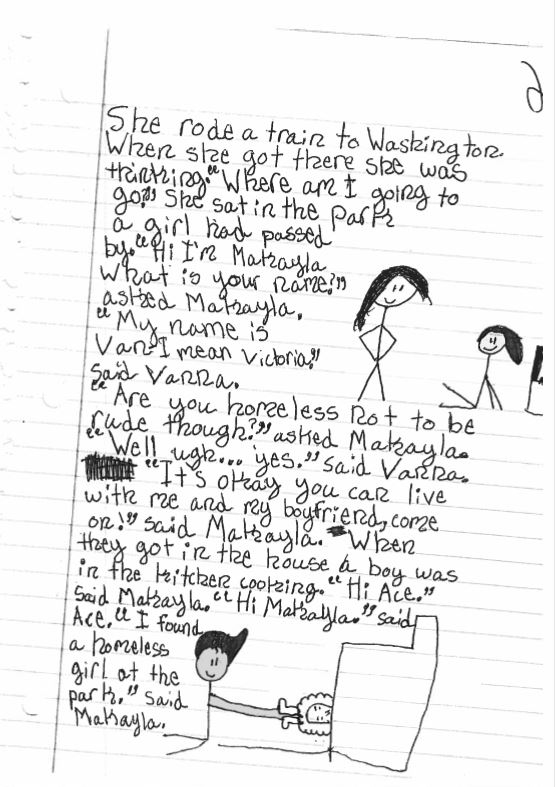 2
She rode a train to Washington.
When she got there she was
thinking."Where am I going to
go?" She sat in the park
a girl had passed
by."Hi I'm Makayla
What is your name?"
asked Makayla.
"My name is
Van-I mean Victoria."
said Vanna.
"Are you homeless not to be
rude though?" asked Makayla.
"Well ugh... yes." said Vanna.
"It's okay you can live
with me and my boyfriend, come
on!" said Makayla. When
they got in the house a boy was
in the kitchen cooking. "Hi Ace."
said Makayla. "Hi Makayla." said
Ace. "I found
a homeless
girl at the
park." said
Makayla.